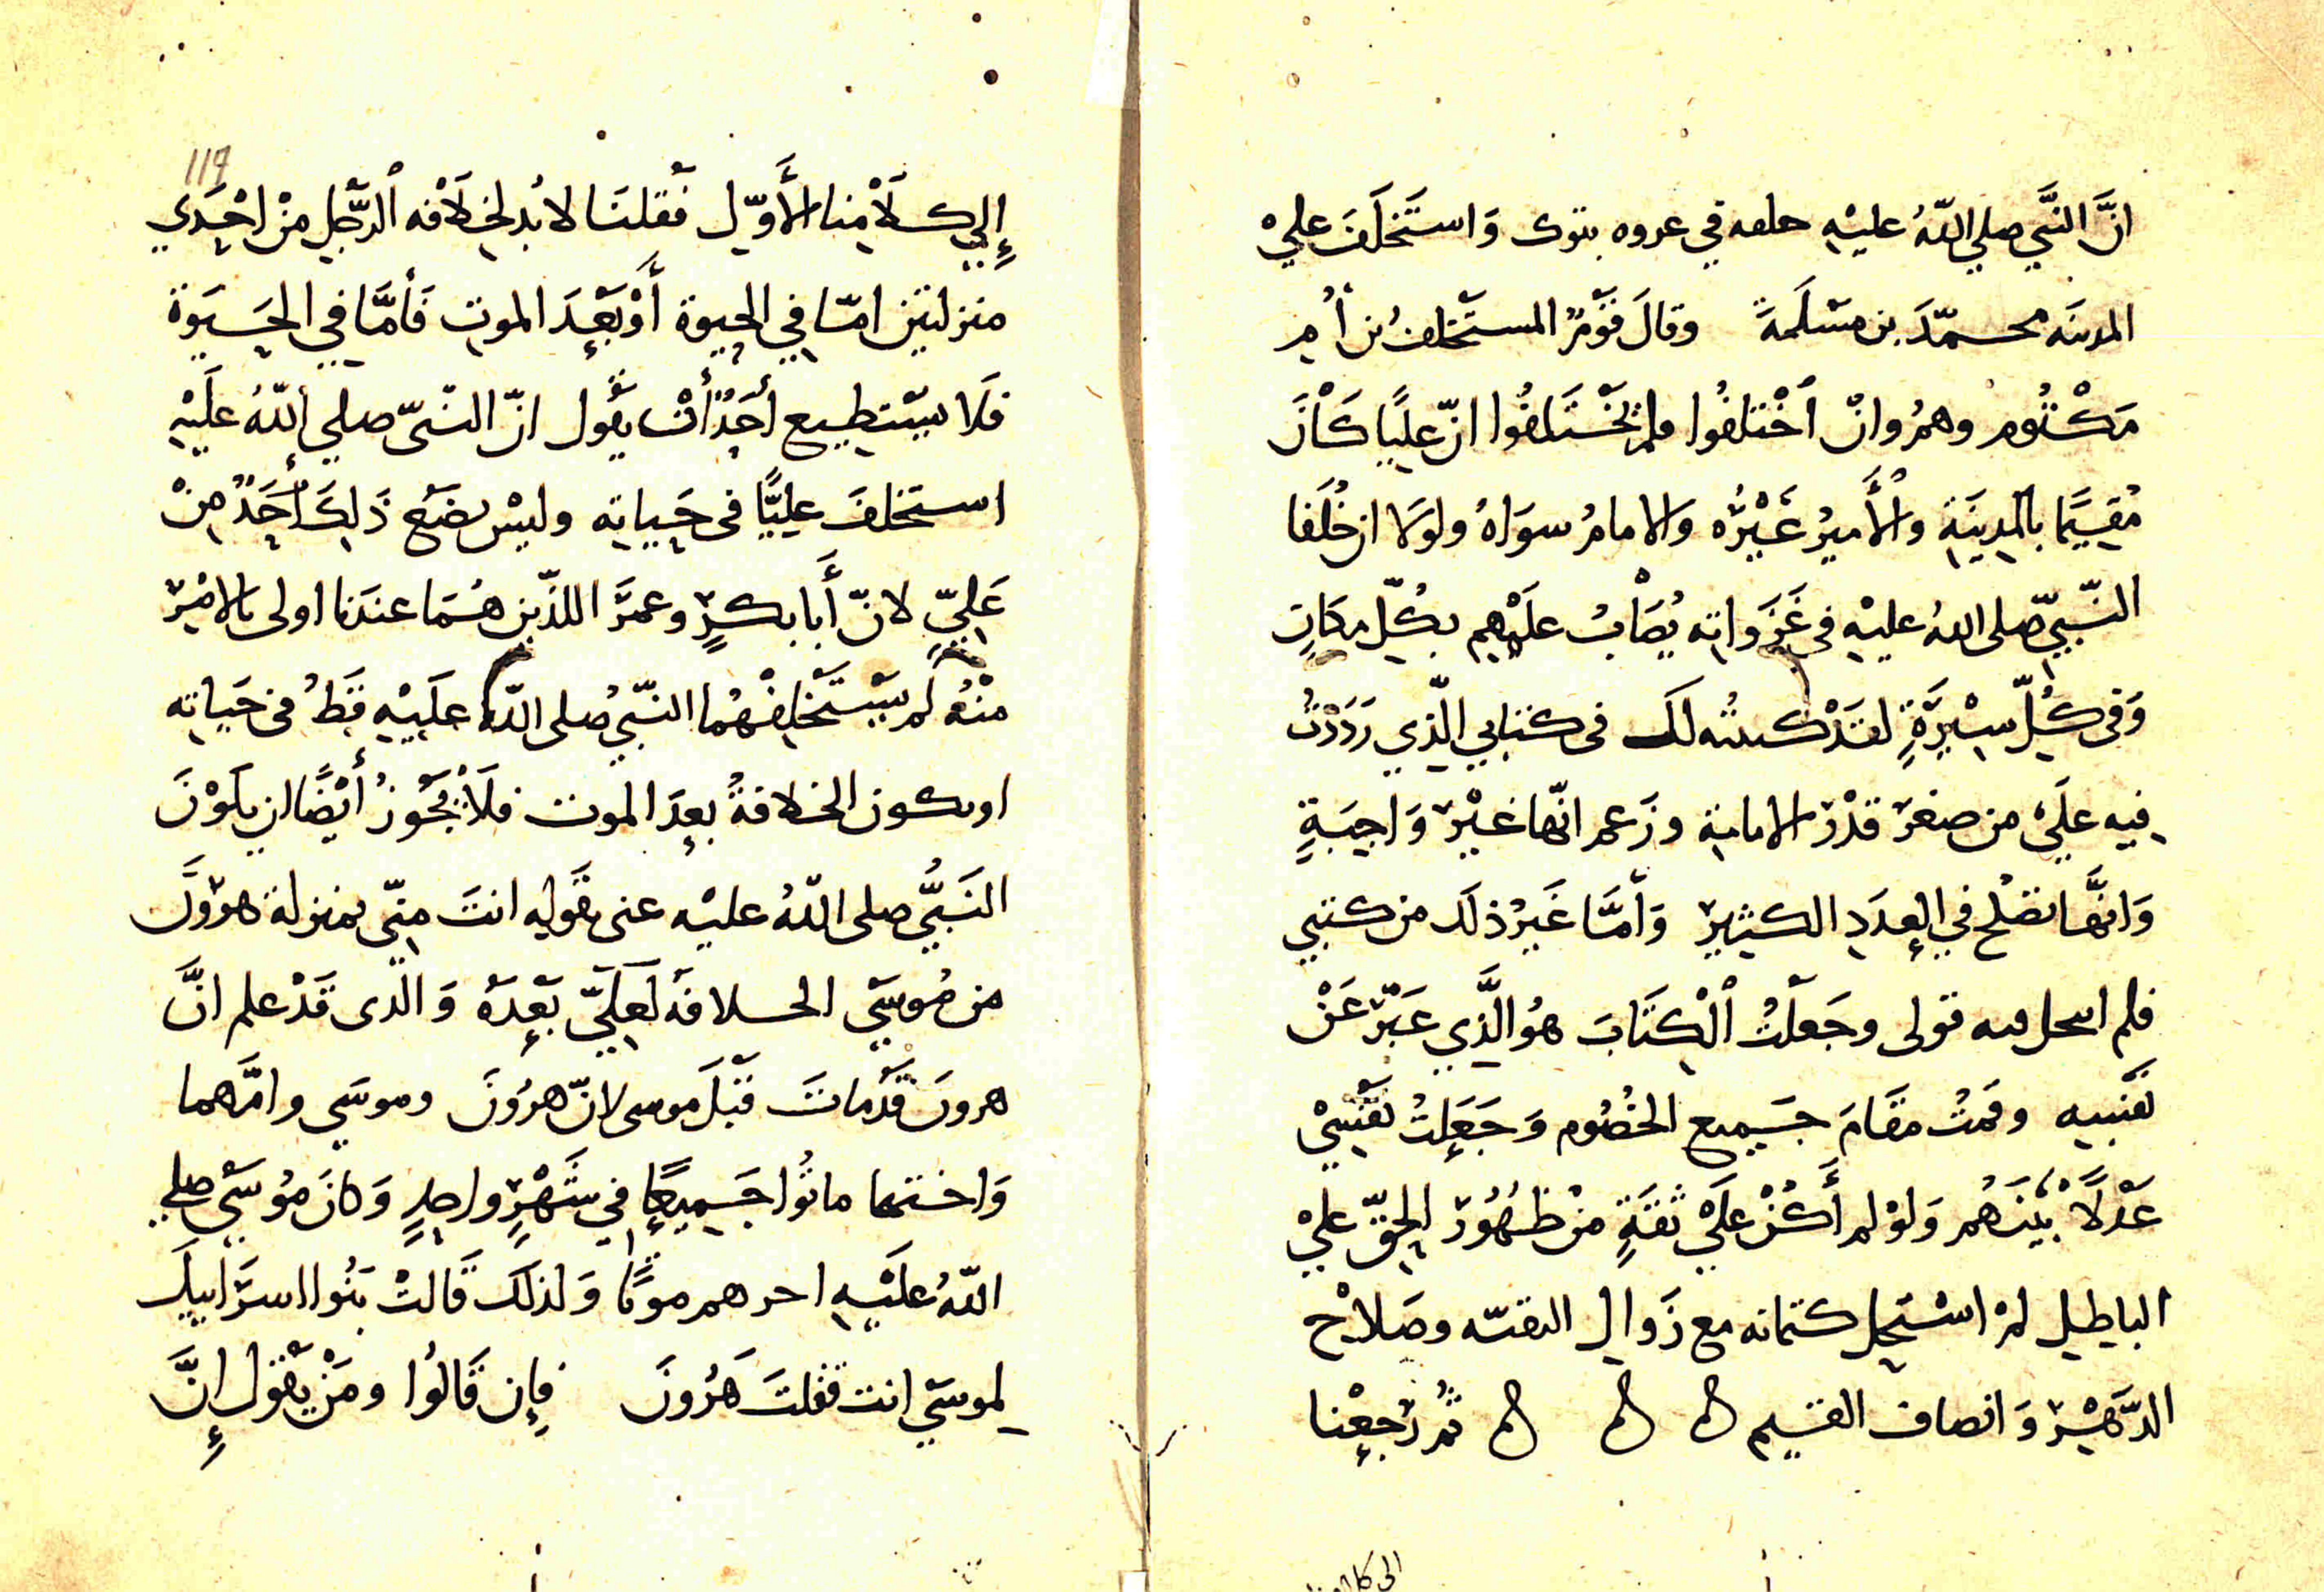 انَّ النَّبيَّ صلى اللّهُ عليْهِ خلفه في غزوه تبوك وَاستَخلَفَ عليْ
المدينَه محمّدَ بن مَسْلَمَةَ وقالَ قَوْمٌ المستَخْلفُ بن أُم
مَكْتُوم وهمُ وانْ أخْتلفُوا فلم يَخْتَلفُوا انّ عليًا كَانَ
مُقيمًا بالمدِينَةِ والأَميرُ غَيْرُه والامامُ سوَاهُ ولولا ان خُلَفا
النّبيّ صلى اللهُ عليْهِ في غَزَواتِه يُصَابُ علَيْهِم بكُلّ مكَانٍ
وَفي كُلّ سيْرَةٍ لقدْ كتبتُه لكَ في كتابي الّذِي رَدَدْتُ
فيه علَي من صغرَ قدْرَ الامامة وزَعم انّها غيْرُ وَاجِبَةٍ
وَانَّها تصْلح في العدَدِ الكثيرِ وَأمَّا غَيرُ ذلكَ من كتبي
فلم انتحل فيه قولى وجَعلْتُ ألْكِتَابَ هوُ الَّذِي عَبّرَ عَنْ
نَفْسِه وقمتُ مقَامَ جَميع الخصُوم وَجَعَلتُ نَفْسِيْ
عَدْلاً بيْنَهُم وَلوْ لم أَكُنْ علَيْ ثقَةٍ منْ ظهُورِ الحقّ عليْ
الباطِل لمْ استَحِل كتمانه مع زَوال التقيّه وصَلاح
الدّهْرِ وَانصاف القيم ثمُ رَجعْنا
الى كلامنا
119
إلي كلَامِنا الأَوّل فقلنَا لا بُد لخلَافه ألرّجُل منْ احْدَي
منزلتين امّا في الحيوة أَوْ بَعْدَ الموت فَأمَّا في الحَيَوة
فَلا يسْتطيع أحَدٌ أنْ يقُول انّ النّبيّ صلي أللّهُ علَيْهِ
استخلفَ عليًّا في حَياتِه وليْس يضَع ذَلِكَ أَحَدٌ مِنْ
عَليٍّ لانّ أَبا بكرٍ وعمرَ اللذّين هُمَا عندَنا اولى بالامْرِ
منْهُ لم يسْتَخْلِفْهُما النّبيُ صلى اللّهُ علَيْهِ قَطُ في حَياتِه
او تكون الخلافةُ بعدَ الموت فلَا يجُوزُ أيْضًا ان يكَوْنَ
النَبيُّ صلى اللّهُ عليْه عنى بقَولِه انتَ مِنّي بمنزلة هرُوَن
من مُوسَي الخلافة لعَليّ بَعْدَهُ وَالّذى قَدْ علم انَّ
هرونَ قَدْ ماتَ قبْلَ موسى لانّ هرُونَ وموسَي وامّهما
وَاختهما ماتُوا جَميعًا في شَهْرٍ واحدٍ وَكانَ مُوسَي صلي
اللّهُ علَيْهِ اخرهم موتًا وَلذلكَ قَالتْ بَنُوا اسرَاييلَ
لموسَي انت قتلتَ هَرُونَ فإن قَالُوا ومَنْ يقُول إنَّ